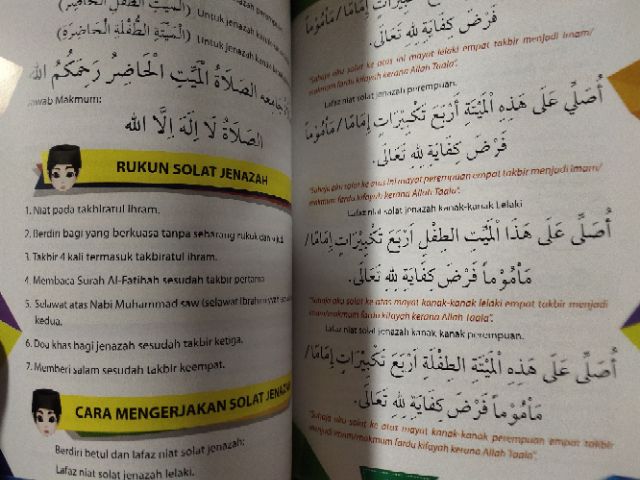 (الْمَيِّتِ الطِّفْلِ الْحَاضِرِ) Untuk jenazah
(الْمَيِّتَةِ الطِّفْلَةِ الْحَاضِرَةِ) Untuk jenazah kanak
الصَّلَاةُ الْمَيِّتِ الْحَاضِرُ رَحِمَكُمُ الله
Jawab Makmum:
الصَّلَاةُ لَا إِلَهَ إِلَّا الله
RUKUN SOLAT JENAZAH
1. Niat pada takbiratul ihram.
2. Berdiri bagi yang berkuasa tanpa sebarang rukuk dan
3. Takbir 4 kali termasuk takbiratul ihram.
4. Membaca Surah Al-Fatihah sesudah takbir pertama
5. Selawat atas Nabi Muhammad saw (selawat Ibrahim)
kedua.
6. Doa khas bagi jenazah sesudah takbir ketiga.
7. Memberi salam sesudah takbir keempat.
CARA MENGERJAKAN SOLAT JENAZAH
Berdiri betul dan lafaz niat solat jenazah:
Lafaz niat solat jenazah lelaki.
تَكْبِيرَاتٍ إِمَامًا/مَأْمُوماً
فَرْضَ كِفَايَةٍ لِلهِ تَعَالَى.
"Sahaja aku solat ke atas ini mayat lelaki empat takbir menjadi imam/
makmum fardu kifayah kerana Allah Taala".
Lafaz niat solat jenazah perempuan.
أُصَلِّي عَلَى هَذِهِ الْمَيِّتَةِ أَرْبَعَ تَكْبِيرَاتٍ إِمَامًا/مَأْمُوماً
فَرْضَ كِفَايَةٍ لِلهِ تَعَالَى.
"Sahaja aku solat ke atas ini mayat perempuan empat takbir menjadi imam/
makmum fardu kifayah kerana Allah Taala".
Lafaz niat solat jenazah kanak-kanak Lelaki
أُصَلِّى عَلَى هَذَا الْمَيِّتِ الطِّفْلِ أَرْبَعَ تَكْبِيرَاتٍ إِمَامًا/
مَأْمُوماً فَرْضَ كِفَايَةٍ لِلهِ تَعَالَى.
"Sahaja aku solat ke atas mayat kanak-kanak lelaki empat takbir menjadi
imam/makmum fardu kifayah kerana Allah Taala".
Lafaz niat solat jenazah kanak, kanak perempuan.
أُصَلِّى عَلَى هَذِهِ الْمَيِّتَةِ الطِّفْلَةِ أَرْبَعَ تَكْبِيرَاتٍ إِمَامًا/
مَأْمُوماً فَرْضَ كِفَايَةٍ لِلهِ تَعَالَى.
"Sahaja aku solat ke atas mayat kanak-kanak perempuan empat takbir menjadi
imam/makmum fardu kifayah kerana Allah Taala".